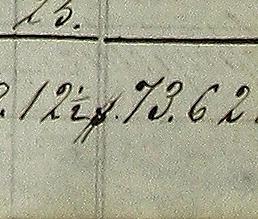 13.
.12½ $.73.62